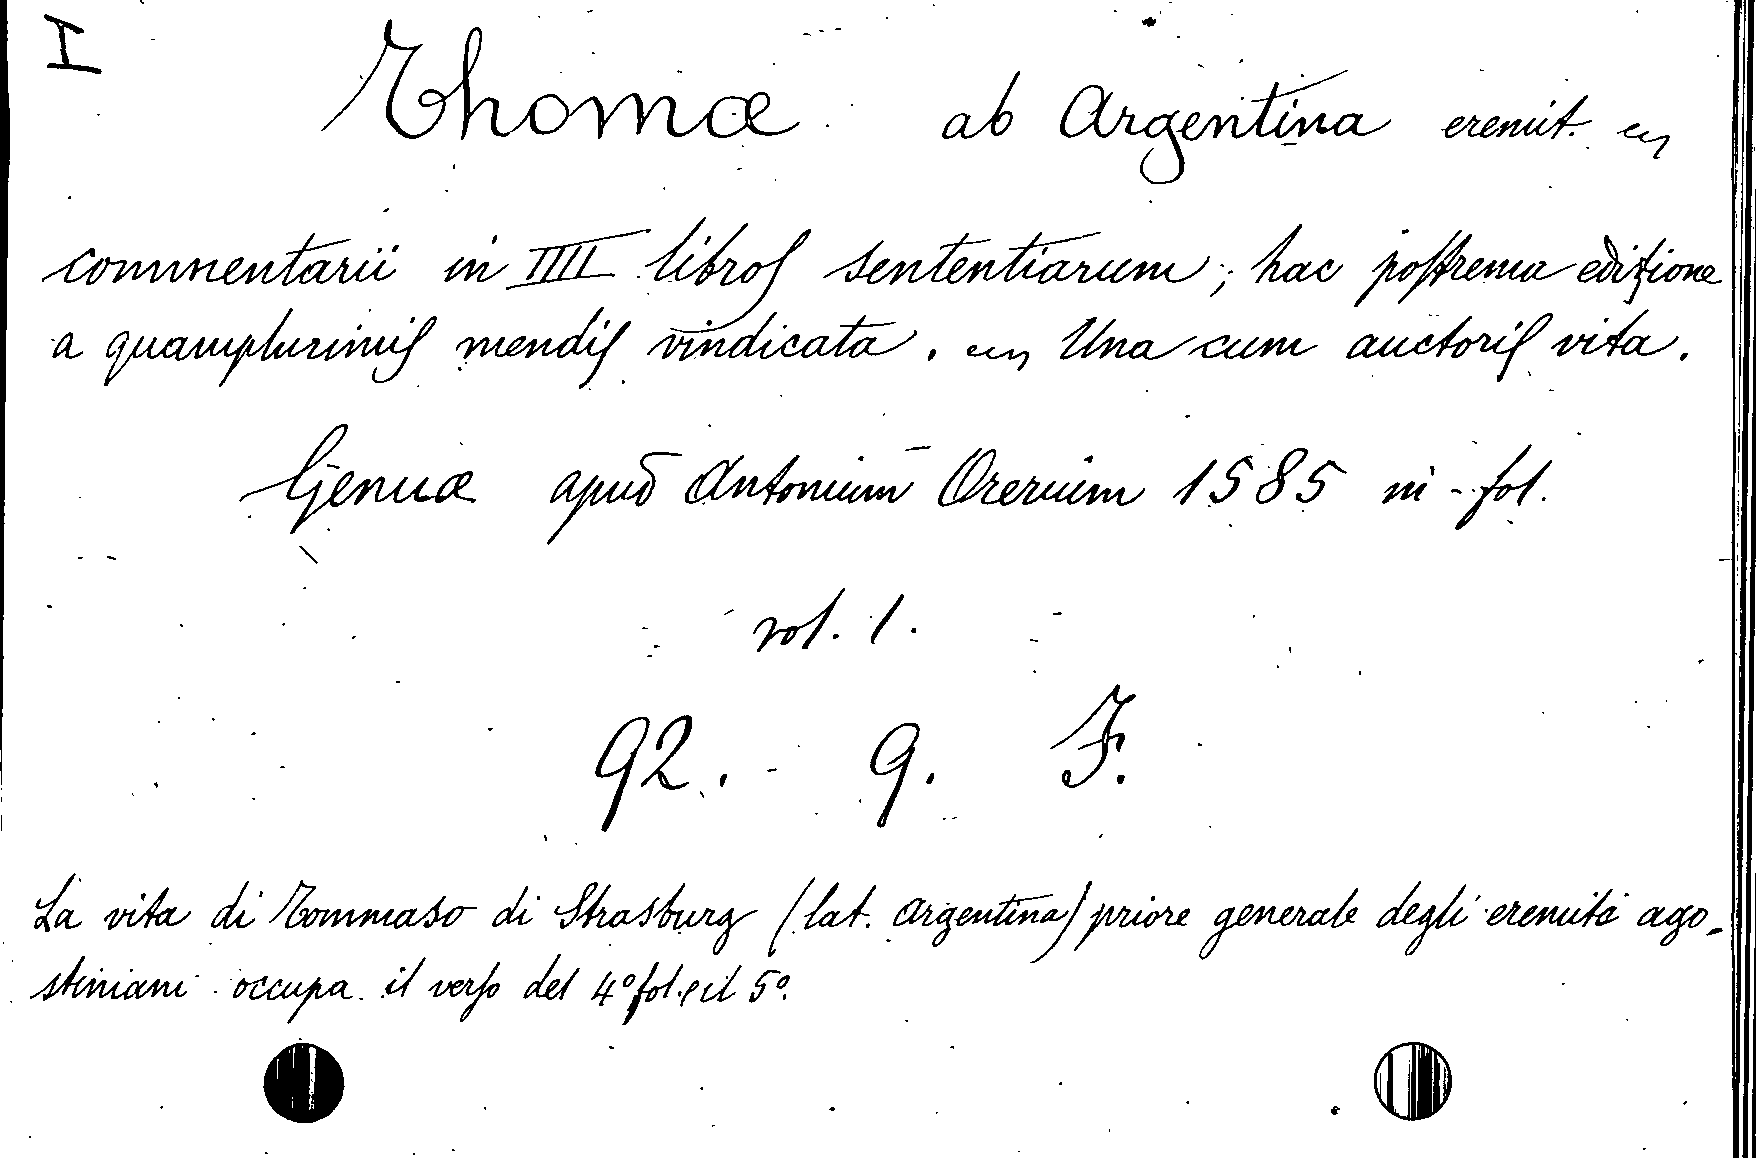 I
Thomæ ab Argentina eremit.
commentarii in IIII libros sententiarum; hac postrema edizione
a quamplurimis mendis vindicata. Una cum auctoris vita.
Genuæ apud Antonium Orerium 1585 in-fol.
vol. 1.
92. - 9. F.
La vita di Tommaso di Strasburg (lat. Argentina) priore generale degli eremiti ago-
stiniani occupa il verso del 4º fol. e il 5º.